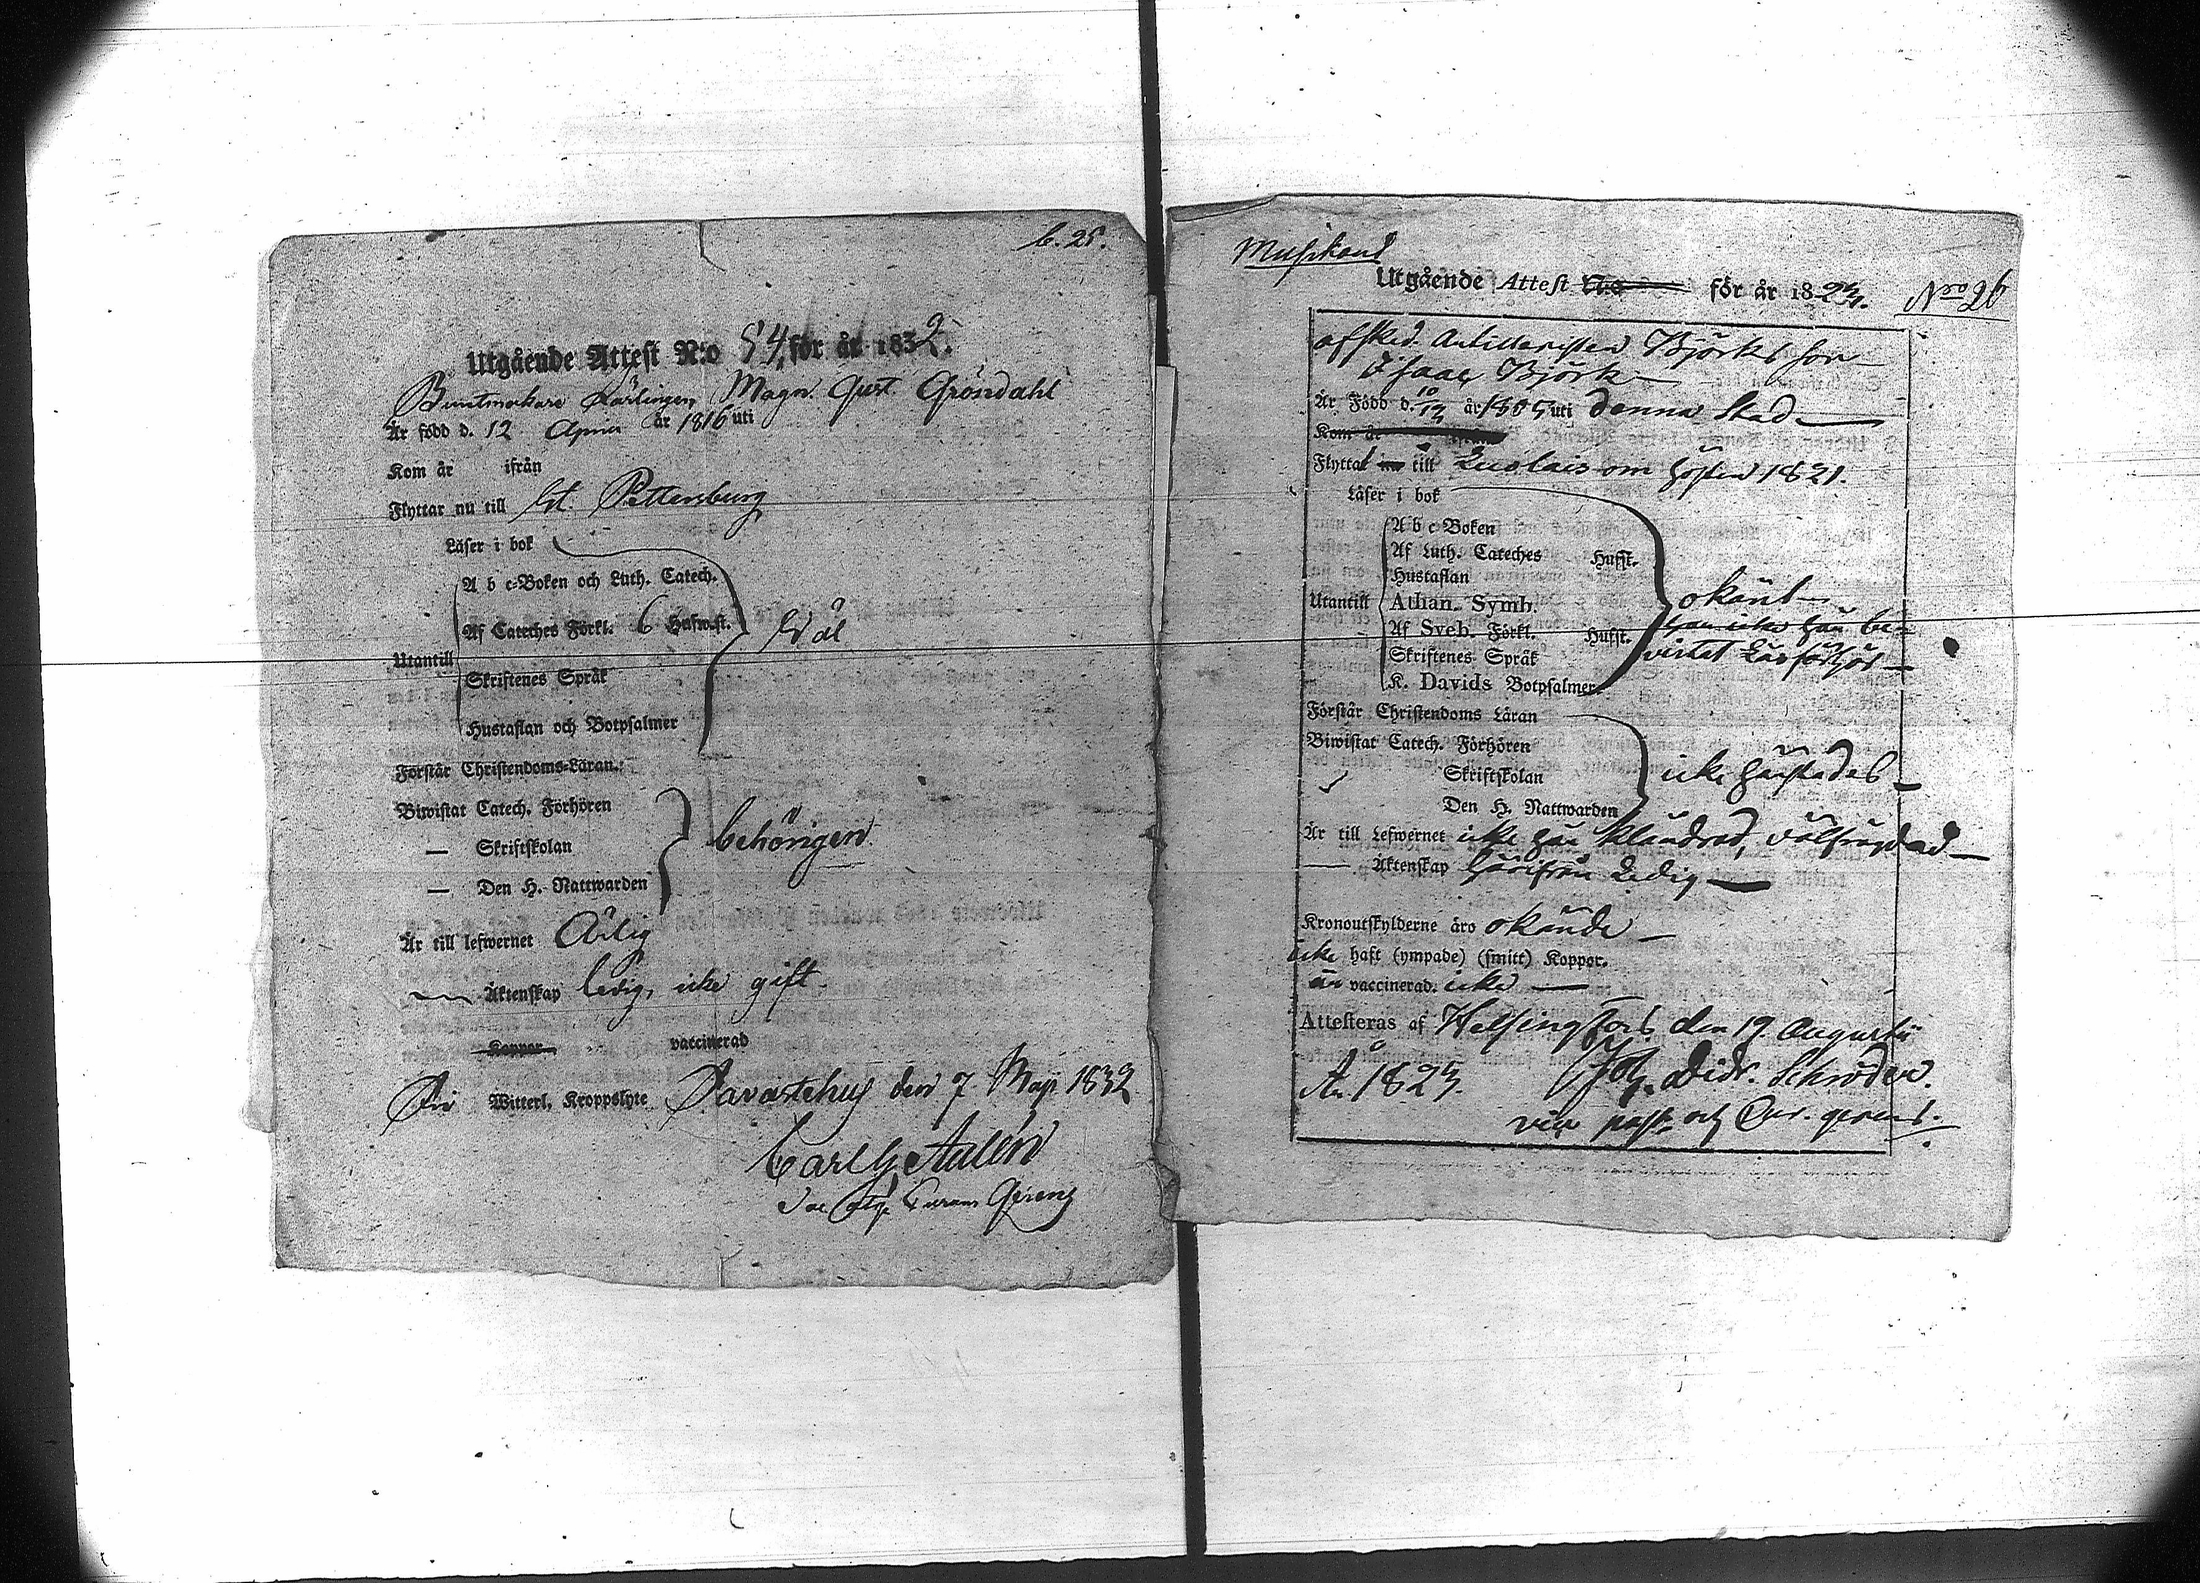 b. 25.
Utgående Attest N:o 54, för år 1832.
Buntmakare Lärlingen Magn. Gust. Gröndahl
Är född d. 12 April år 1816 uti
Kom år ifrån
Flyttar nu till St. Pettersburg
Läser i bok
A b c-Boken och Luth. Catech.
Af Cateches Förkl. 6 Hufwst.
Wäl
Utantill
Skriftenes Språk
Hustaflan och Botpsalmer
Förstår Christendoms-Läran.
Biwistat Catech. Förhören
— Skriftskolan
behörigen
— Den H. Nattwarden
Är till lefwernet Ärlig
— Äktenskap ledig, icke gift.
Koppor vaccinerad
Witterl. Kroppslyte Tavastehus den 7 Maji 1832
Carl G Aulén
Gerens
Musikant
Utgående Attest N:o för år 1823. Nro 26
afsked. Artilleristen Björks son
Isaac Björk
Är Född d. 10/12 år 1805 uti denna Stad
Kom år ifrån
Flyttat till om hösten 1821.
Läser i bok
A b c-Boken
Af Luth. Cateches Hufst.
Hustaflan
okänt
Utantill
Athan. Symb.
Af Sveb. Förkl. Hufst.
han icke här be-
Skriftenes Språk
vistat Läsförhör
K. Davids Botpsalmer
Förstår Christendoms Läran
Biwistat Catech. Förhören
Skriftskolan
icke härstädes
Den H. Nattwarden
Är till Lefwernet icke här klandrad, välfrejdad
— Äktenskap härifrån Ledig
Kronoutskylderne äro okände
icke haft (ympade) (smitt) Koppor.
är vaccinerad. icke
Attesteras af Helsingfors den 19 Augusti
År 1823. Joh. Didr. Schröder.
vice past. och Cur. gerens.